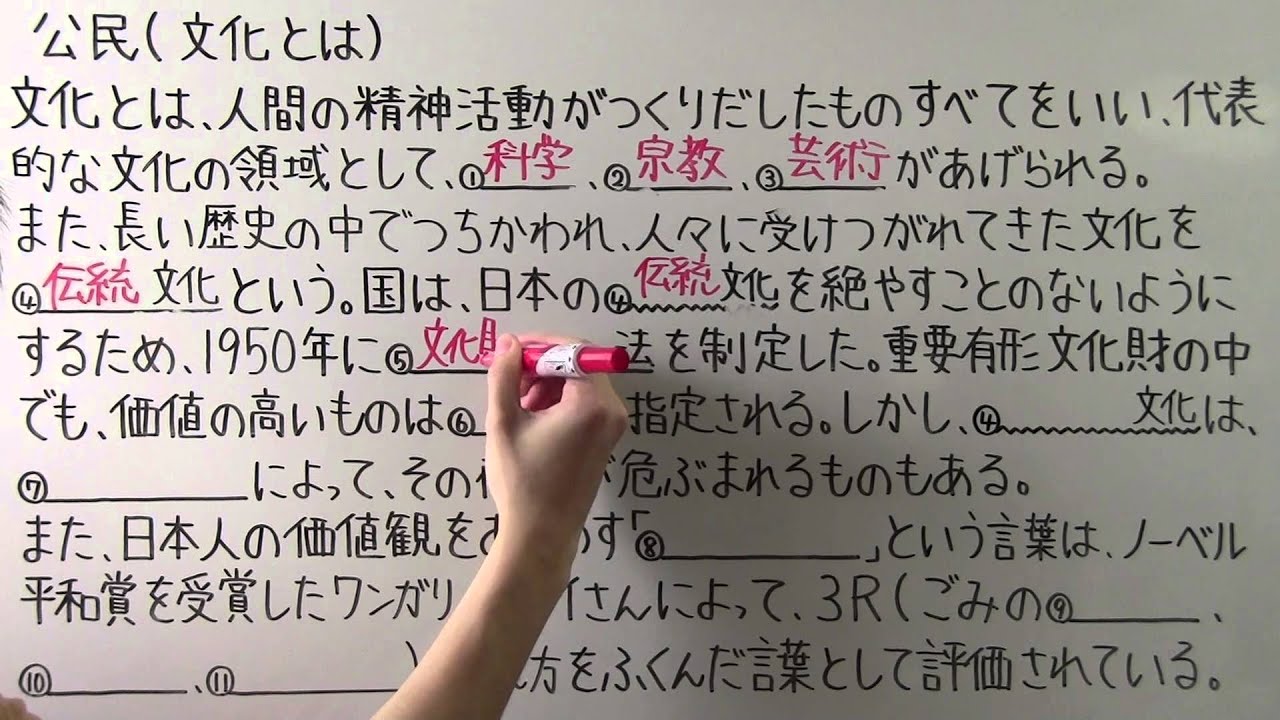 公民(文化とは)
文化とは、人間の精神活動がつくりだしたものすべてをいい、代表
的な文化の領域として、①科学、②宗教、③芸術があげられる。
また、長い歴史の中でつちかわれ、人々に受けつがれてきた文化を
④伝統文化という。国は、日本の④伝統文化を絶やすことのないように
するため、1950年に⑤文化財 法を制定した。重要有形文化財の中
でも、価値の高いものは⑥ 指定される。しかし、④ 文化は、
⑦ によって、その 危ぶまれるものもある。
また、日本人の価値観を す「⑧ 」という言葉は、ノーベル
平和賞を受賞したワンガリ イさんによって、3R(ごみの⑨ 、
⑩ 、⑪ ) 方をふくんだ言葉として評価されている。